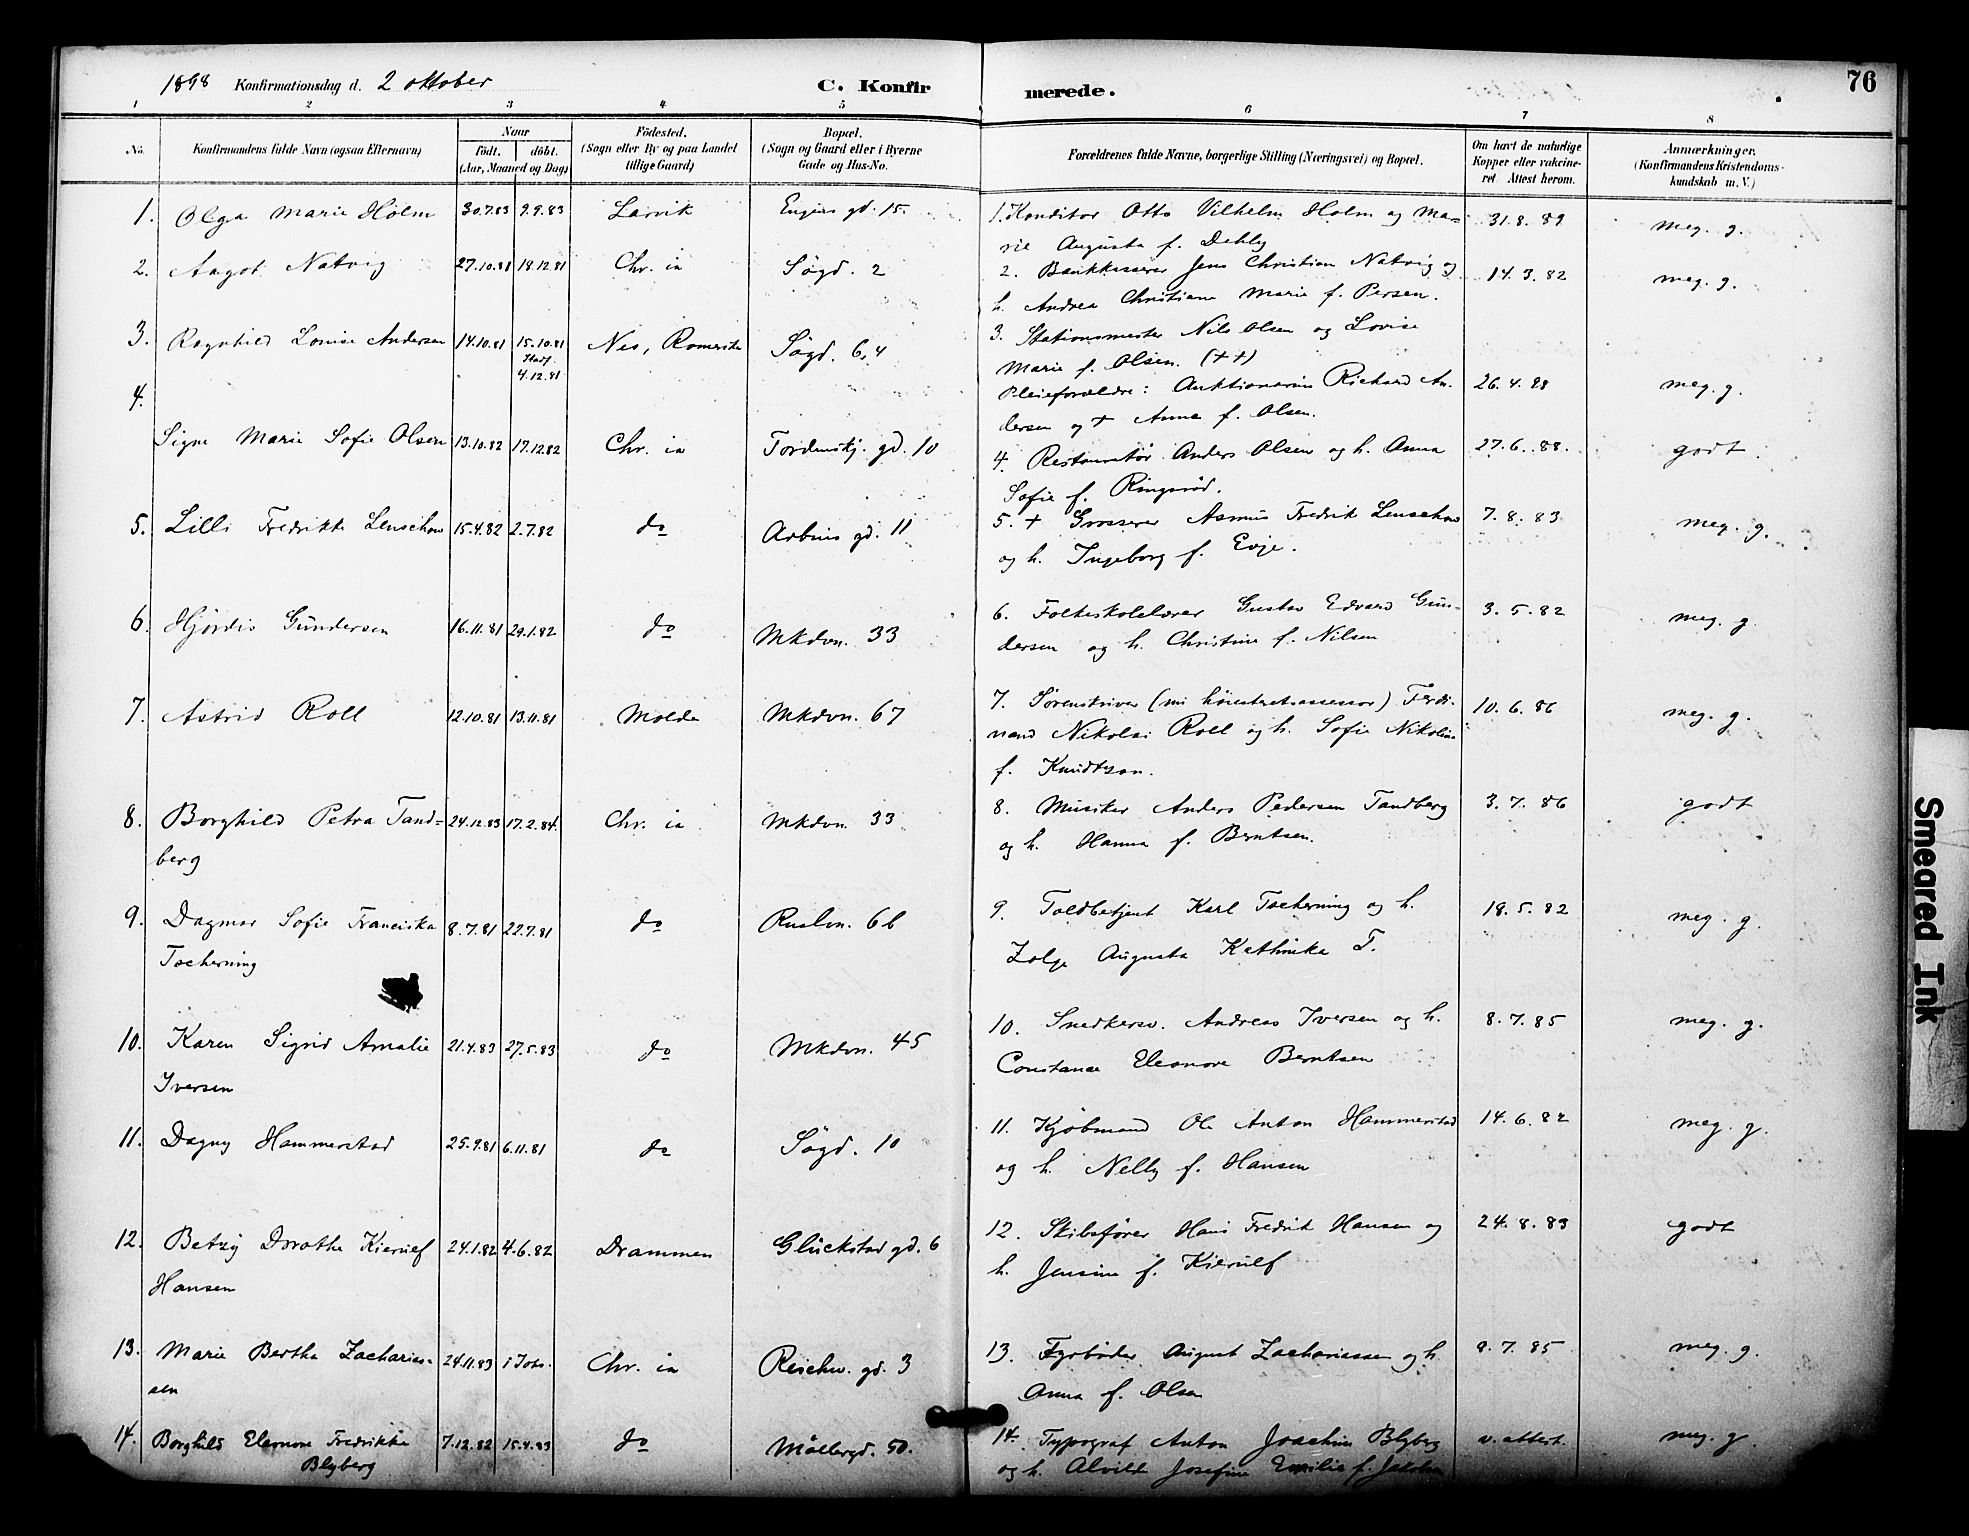 1898 Konfirmationsdag d. 2 oktober C. Konfirmerede. 76
1 2 3 4 5 6 7 8
No. Konfirmandens fulde Navn (ogsaa Efternavn)
Naar
födt. döbt.
(Aar, Maaned og Dag)
Födested.
(Sogn eller By og paa Landet
tillige Gaard)
Bopæl.
(Sogn og Gaard eller i Byerne
Gade og Hus-No.
Forældrenes fulde Navne, borgerlige Stilling (Næringsvei) og Bopæl.
Om havt de naturlige
Kopper eller vakcine-
ret Attest herom.
Anmærkninger.
(Konfirmandens Kristendoms-
kundskab m. V.)
1. Olga Marie Holm 30.7.83 9.9.83 Larvik Engens gd. 15. 1. Konditor Otto Vilhelm Holm og Ma- 31.8.89 meg. g.
rie Augusta f. Dehly
2. Aagot Natvig 27.10.81 18.12.81 Chr. ia Sögd. 2 2. Bankkasserer Jens Christian Natvig og 14.3.82 meg. g.
h. Andrea Christiane Marie f. Persen.
3. Ragnhild Lovise Andersen 14.10.81 15.10.81 Nes, Romerike Sögd. 6,4 3. Stationsmester Nils Olsen og Lovise
4.12.81
Marie f. Olsen. (++)
Pleieforældre: Auktionarius Richard An- 26.4.88 meg. g.
dersen og + Anna f. Olsen.
4. Signe Marie Sofie Olsen 13.10.82 17.12.82 Chr. ia Tordenskj. gd. 10 4. Restauratør Anders Olsen og h. Anna 27.6.88. godt
Sofie f. Ringsröd.
5. Lilli Fredrikke Lenschow 15.4.82 2.7.82 do Arbins gd. 11 5. + Grosserer Asmus Fredrik Lenschow 7.8.83 meg. g.
og h. Ingeborg f. Evje.
6. Hjördis Gundersen 16.11.81 29.1.82 do Mkdvn. 33 6. Folkeskolelærer Gustav Edvard Gun- 3.5.82 meg. g.
dersen og h. Christine f. Nilsen
7. Astrid Roll 12.10.81 13.11.81 Molde Mkdvn. 67 7. Sorenskriver (nu höiesteretsassessor) Ferdi- 10.6.86 meg. g.
nand Nikolai Roll og h. Sofie Nikoline
f. Knudtzon.
8. Borghild Petra Tand- 24.12.83 17.2.84. Chr. ia Mkdvn. 33 8. Musiker Anders Pedersen Tandberg 3.7.86 godt
berg og h. Hanna f. Berntsen.
9. Dagmar Sofie Franciska 8.7.81 22.7.81 do Rusln. 6b 9. Toldbetjent Karl Tscherning og h. 18.5.82 meg. g.
Tscherning Augusta Kathinka T.
10. Karen Sigrid Amalie 21.4.83 27.5.83 do Mkdvn. 45 10. Snedkersv. Andreas Iversen og h. 8.7.85 meg. g.
Iversen Constance Eleonore Berntsen
11. Dagny Hammerstad 25.9.81 6.11.81 do Sögd. 10 11. Kjöbmand Ole Anton Hammerstad 14.6.82 meg. g.
og h. Nelly f. Hansen
12. Betzy Dorothe Kierulf 24.1.82 4.6.82 Drammen Glückstad gd. 6 12. Skibsförer Hans Fredrik Hansen og 24.8.83 godt
Hansen h. Jensine f. Kierulf
13. Marie Bertha Zacharias- 24.11.83 i Johs. Chr. ia Reichw. gd. 3 13. Fyrböder August Zachariassen og h. 9.7.85 meg. g.
sen Anna f. Olsen
14. Borghild Eleonore Fredrikke 7.12.82 15.4.83 do Möllergd. 50. 14. Typograf Anton Joachim Blyberg v. attest. meg. g.
Blyberg og h. Alvilde Josefine Emilie f. Jacobsen
Smeared Ink